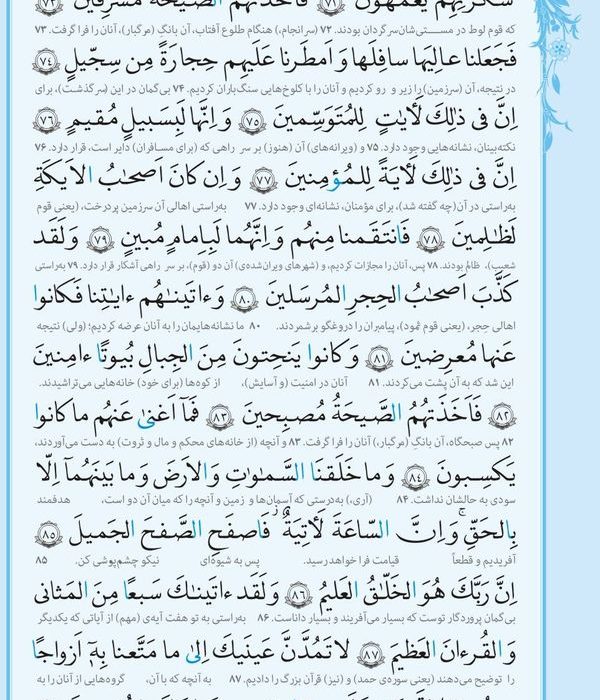 سَكرَتِهِم يَعمَهونَ ﴿۷۲﴾ فَاَخَذَتهُمُ الصَّيحَةُ مُشرِقينَ ﴿۷۳﴾
که قوم لوط در مســتی‌شان سرگردان بودند. ۷۲ (سرانجام،) هنگام طلوع آفتاب، آن بانگِ (مرگبار)، آنان را فرا گرفت. ۷۳
فَجَعَلنا عالِيَها سافِلَها وَ اَمطَرنا عَلَيهِم حِجارَةً مِن سِجّيلٍ ﴿۷۴﴾
در نتیجه، آن (سرزمین) را زیر و رو کردیم و آنان را با کلوخ‌هایی سنگ‌باران کردیم. ۷۴ بی‌گمان در این (سرگذشت)، برای
اِنَّ فى ذٰلِكَ لَأٰياتٍ لِلمُتَوَسِّمينَ ﴿۷۵﴾ وَ اِنَّها لَبِسَبيلٍ مُقيمٍ ﴿۷۶﴾
نکته‌بینان، نشانه‌هایی وجود دارد. ۷۵ و (ویرانه‌های) آن (هنوز) بر سر راهی که (برای مسافران) دایر است، قرار دارد. ۷۶
اِنَّ فى ذٰلِكَ لَأٰيَةً لِلمُؤمِنينَ ﴿۷۷﴾ وَ اِن كانَ اَصحابُ الاَيكَةِ
به‌راستی در آن (چه گفته شد)، برای مؤمنان، نشانه‌ای وجود دارد. ۷۷ به‌راستی اهالی آن سرزمین پردرخت، (یعنی قوم
لَظالِمينَ ﴿۷۸﴾ فَانتَقَمنا مِنهُم وَ اِنَّهُما لَبِاِمامٍ مُبينٍ ﴿۷۹﴾ وَ لَقَد
شعیب)، ظالم بودند. ۷۸ پس، آنان را مجازات کردیم، و (شهرهای ویران‌شده‌ی) آن دو (قوم)، بر سر راهی آشکار قرار دارد. ۷۹ به‌راستی
كَذَّبَ اَصحابُ الحِجرِ المُرسَلينَ ﴿۸۰﴾ وَ ءاتَيناهُم ءاياتِنا فَكانوا
اهالی حِجر، (یعنی قوم ثمود)، پیامبران را دروغگو برشمردند. ۸۰ ما نشانه‌هایمان را به آنان عرضه کردیم؛ (ولی) نتیجه
عَنها مُعرِضينَ ﴿۸۱﴾ وَ كانوا يَنحِتونَ مِنَ الجِبالِ بُيوتًا ءامِنينَ
این شد که به آن پشت می‌کردند. ۸۱ آنان در امنیت (و آسایش)، از کوه‌ها (برای خود) خانه‌هایی می‌تراشیدند.
﴿۸۲﴾ فَاَخَذَتهُمُ الصَّيحَةُ مُصبِحينَ ﴿۸۳﴾ فَمآ اَغنىٰ عَنهُم ما كانوا
۸۲ پس صبحگاه، آن بانگِ (مرگبار)، آنان را فرا گرفت. ۸۳ و آنچه (از خانه‌های محکم و مال و ثروت) به دست می‌آوردند،
يَكسِبونَ ﴿۸۴﴾ وَ ما خَلَقنَا السَّمٰواتِ وَ الاَرضَ وَ ما بَينَهُمآ اِلّا
سودی به حالشان نداشت. ۸۴ (آری،) به‌درستی که آسمان‌ها و زمین و آنچه را که میان آن دو است، هدفمند
بِالحَقِّ وَ اِنَّ السّاعَةَ لَأٰتِيَةٌ فَاصفَحِ الصَّفحَ الجَميلَ ﴿۸۵﴾
آفریدیم و قطعاً قیامت فرا خواهد رسید. پس به شیوه‌ای نیکو چشم‌پوشی کن. ۸۵
اِنَّ رَبَّكَ هُوَ الخَلّاقُ العَليمُ ﴿۸۶﴾ وَ لَقَد ءاتَيناكَ سَبعًا مِنَ المَثانى
بی‌گمان پروردگار توست که بسیار می‌آفریند و بسیار داناست. ۸۶ به‌راستی به تو هفت آیه‌ی (مهم) از آیاتی که یکدیگر
وَ القُرءانَ العَظيمَ ﴿۸۷﴾ لا تَمُدَّنَّ عَينَيكَ اِلىٰ ما مَتَّعنا بِهٖٓ اَزواجًا
را توضیح می‌دهند (یعنی سوره‌ی حمد) و (نیز) قرآن بزرگ را دادیم. ۸۷ به آنچه که با آن، گروه‌هایی از آنان را به